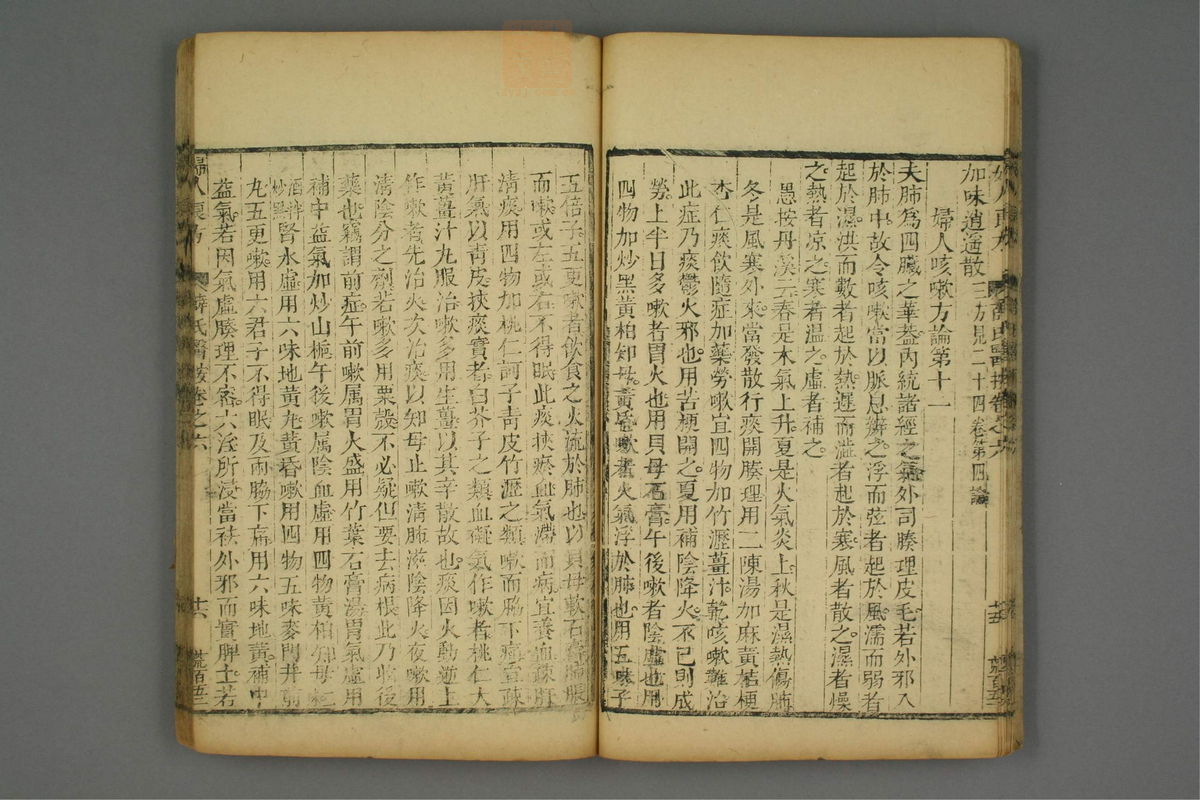 加味逍遥散三方見二十四卷第四論
婦人咳嗽方論第十一
夫肺為四臟之華葢内統諸經之氣外司腠理皮毛若外邪入
於肺中故令咳嗽當以脈息辨之浮而弦者起於風濡而弱者
起於濕洪而數者起於熱遲而澁者起於寒風者散之濕者燥
之熱者凉之寒者温之虛者補之
愚按丹溪云春是木氣上升夏是火氣炎上秋是濕熱傷肺
冬是風寒外來當發散行痰開腠理用二陳湯加麻黃桔梗
杏仁痰飲隨症加藥勞嗽宜四物加竹瀝薑汁乾咳嗽難治
此症乃痰鬱火邪也用苦梗開之夏用補陰降火不已則成
勞上半日多嗽者胃火也用貝母石膏午後嗽者陰虛也用
四物加炒黑黃柏知母黃昏嗽者火氣浮於肺也用五味子
五倍子五更嗽者飲食之火流於肺也以貝母軟石膏肺脹
而嗽或左或右不得眠此痰挾瘀血氣滯而病宜養血疎肝
清痰用四物加桃仁訶子青皮竹瀝之類嗽而脇下痛宜疎
肝氣以青皮挾痰實者白芥子之類血凝氣作嗽者桃仁大
黃薑汁丸服治嗽多用生薑以其辛散故也痰因火動逆上
作嗽者先治火次治痰以知母止嗽清肺滋陰降火夜嗽用
清陰分之劑若嗽多用粟殼不必疑但要去病根此乃收後
藥也竊謂前症午前嗽属胃火盛用竹葉石膏湯胃氣虛用
補中益氣加炒山梔午後嗽属陰血虛用四物黃柏知母
酒拌炒黑腎水虛用六味地黃丸黃昏嗽用四物五味麥門
丸五更嗽用六君子不得眠及兩脇下痛用六味地黃補中
益氣若因氣虛腠理不密六淫所浸當祛外邪而實脾土若
婦人良方
薛氏醫按卷之六